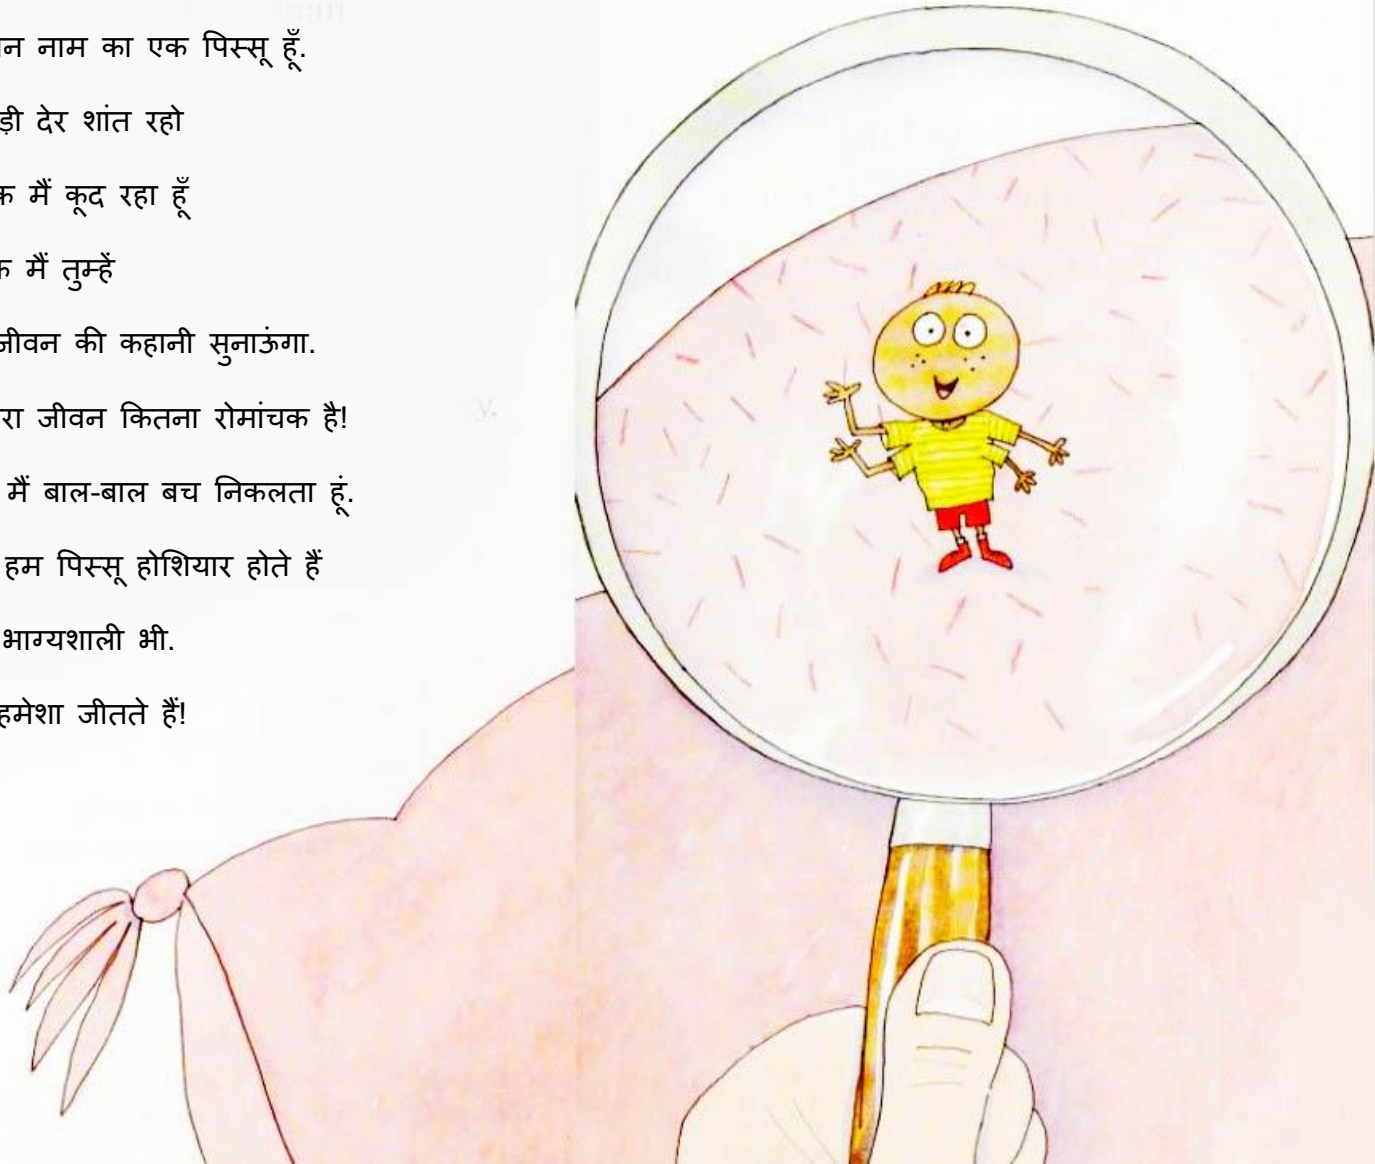 नाम का एक पिस्सू हूँ.
देर शांत रहो
मैं कूद रहा हूँ
मैं तुम्हें
जीवन की कहानी सुनाऊंगा.
जीवन कितना रोमांचक है!
मैं बाल-बाल बच निकलता हूं.
हम पिस्सू होशियार होते हैं
भाग्यशाली भी.
हमेशा जीतते हैं!